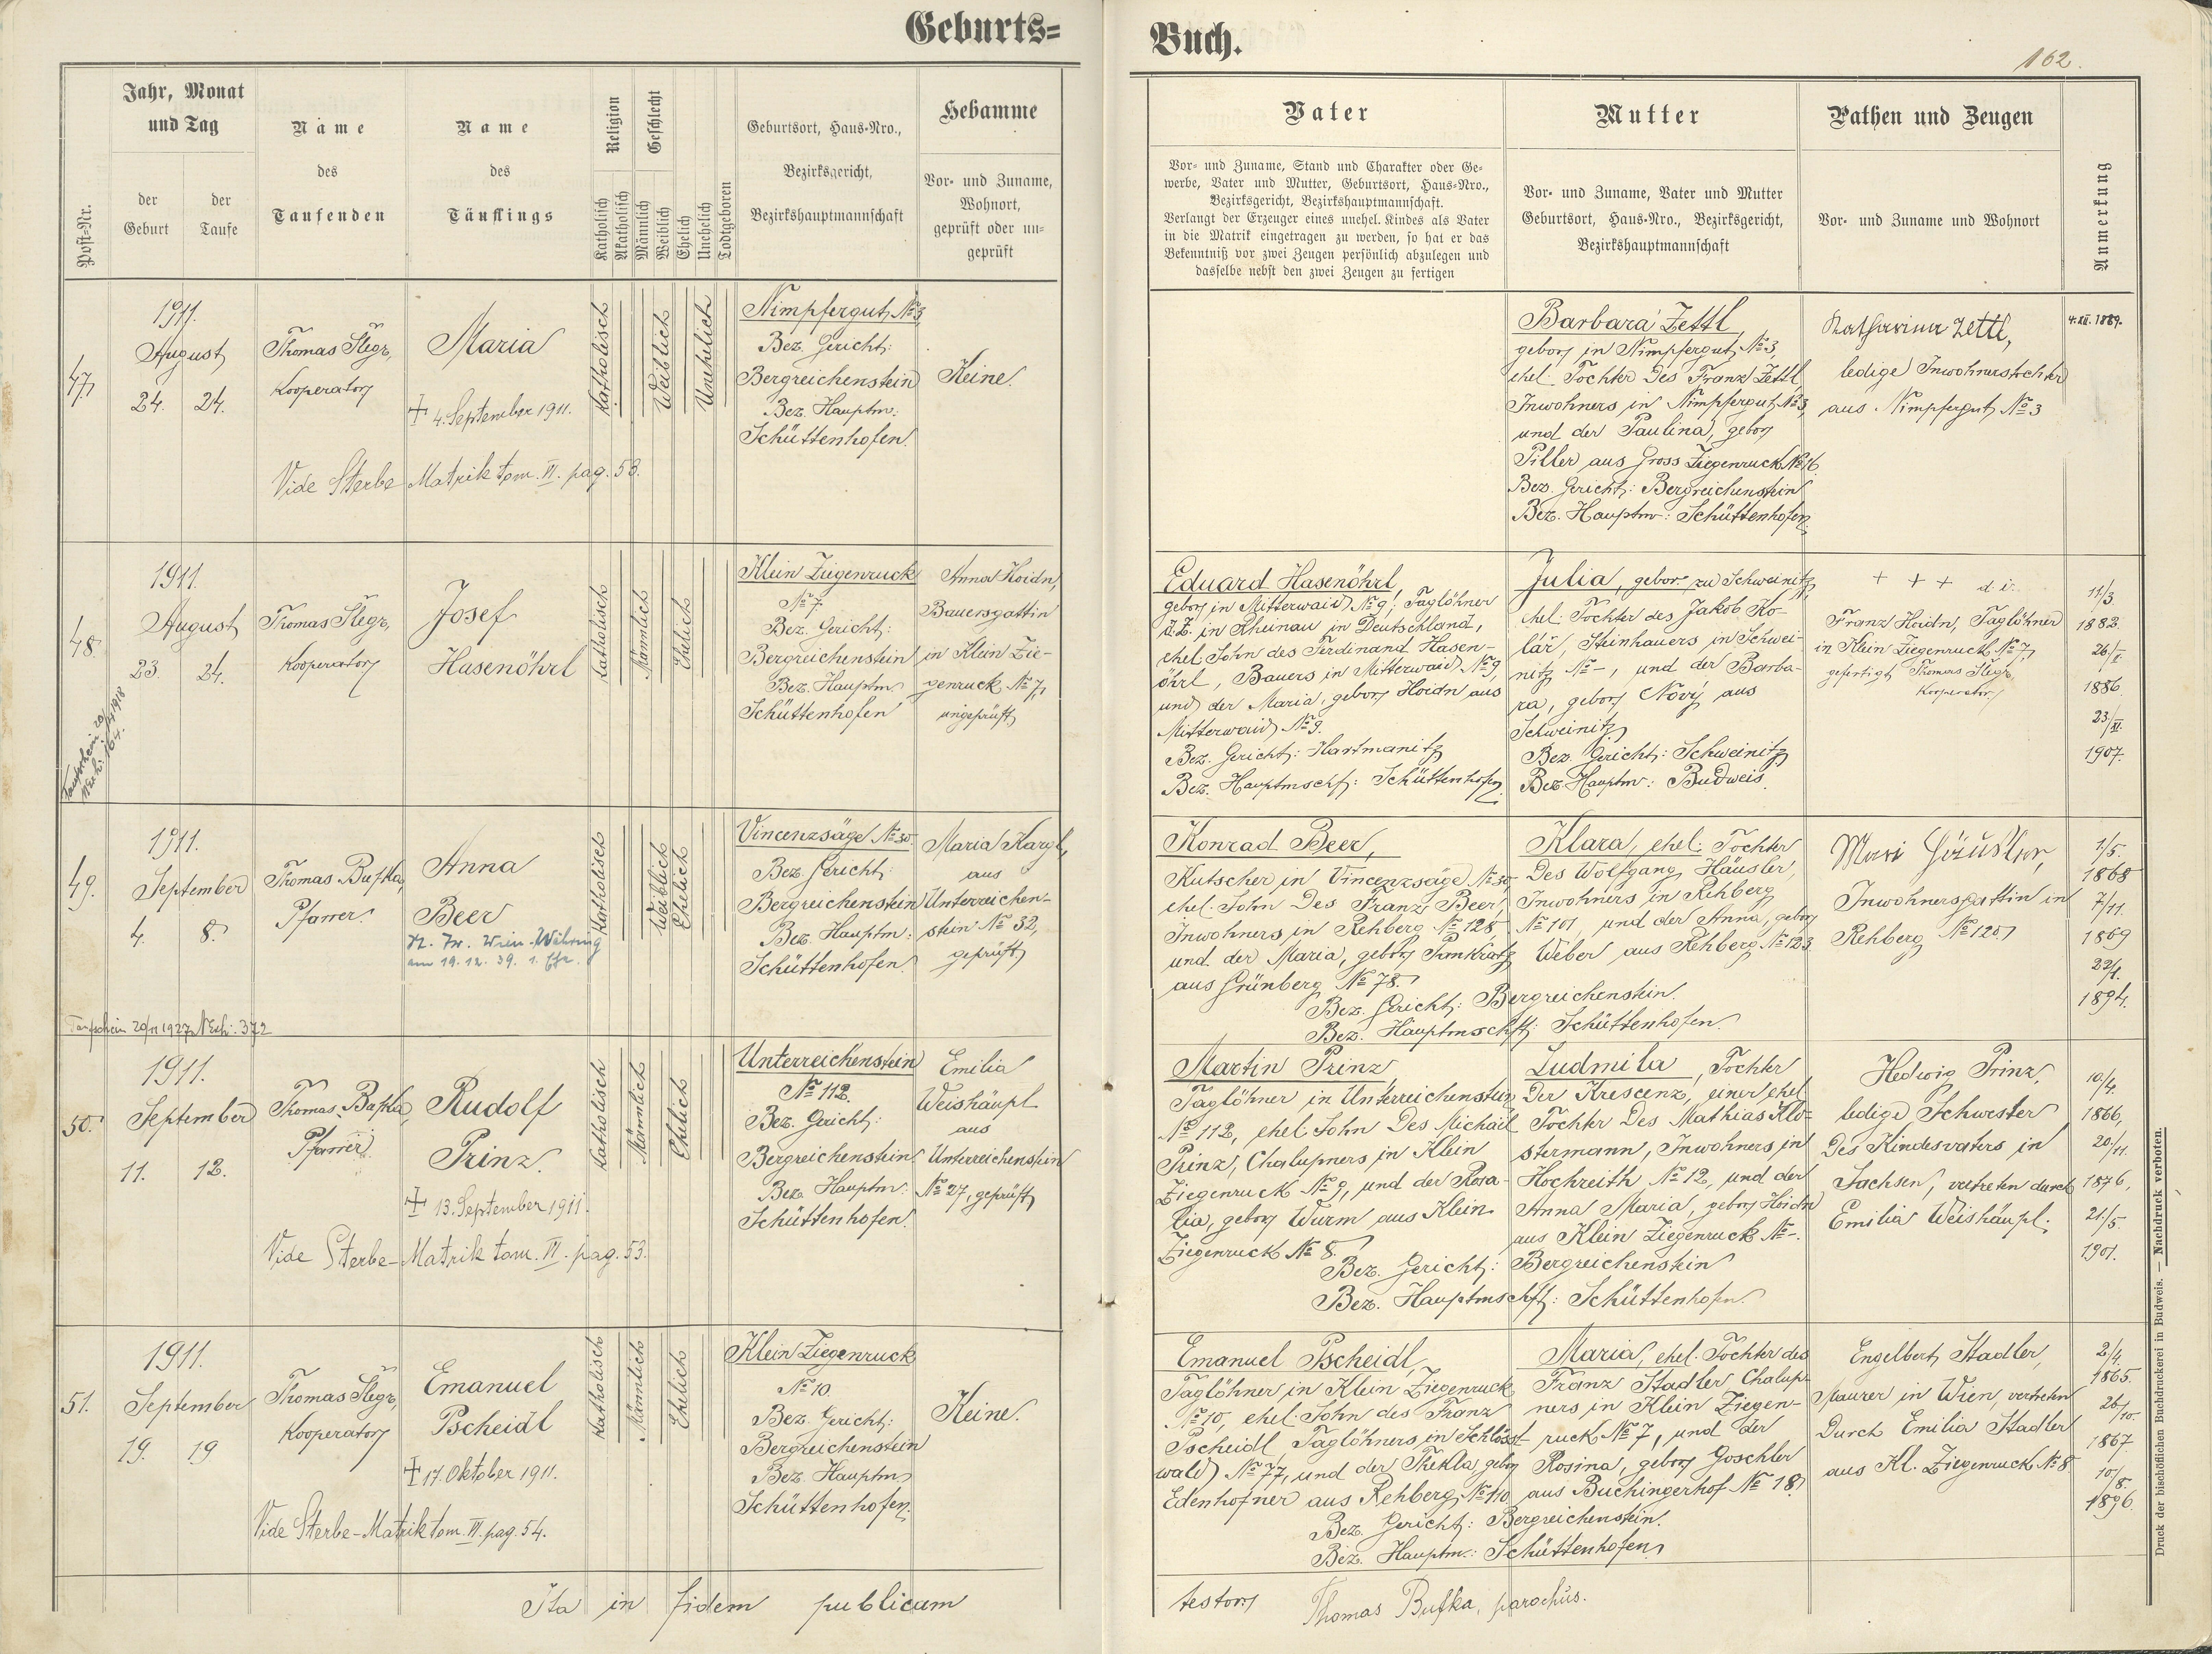 Geburts=
Buch.
162.
Post=Nr.
Jahr, Monat
und Tag
der
Geburt
der
Taufe
Name
des
Taufenden
Name
des
Täuflings
Religion
Katholisch
Akatholisch
Geschlecht
Männlich
Weiblich
Ehelich
Unehelich
Todtgeboren
Geburtsort, Haus=Nro.,
Bezirksgericht,
Bezirkshauptmannschaft
Hebamme
Vor= und Zuname,
Wohnort,
geprüft oder un=
geprüft
Vater
Vor= und Zuname, Stand und Charakter oder Ge=
werbe, Vater und Mutter, Geburtsort, Haus=Nro.,
Bezirksgericht, Bezirkshauptmannschaft.
Verlangt der Erzeuger eines unehel. Kindes als Vater
in die Matrik eingetragen zu werden, so hat er das
Bekenntniß vor zwei Zeugen persönlich abzulegen und
dasselbe nebst den zwei Zeugen zu fertigen
Mutter
Vor= und Zuname, Vater und Mutter
Geburtsort, Haus=Nro., Bezirksgericht,
Bezirkshauptmannschaft
Pathen und Zeugen
Vor= und Zuname und Wohnort
Anmerkung
47.
1911.
August
24. 24.
Thomas Šlegr,
Kooperator
Maria
† 4. September 1911.
Vide Sterbe Matrik tom. VI. pag. 53.
Katholisch
Weiblich
Unehelich
Nimpfergut № 3,
Bez. Gericht:
Bergreichenstein
Bez. Hauptm:
Schüttenhofen.
Keine.
Barbara Zettl,
gebor. in Nimpfergut № 3,
ehel. Tochter des Franz Zettl,
Inwohners in Nimpfergut № 3,
und der Paulina, gebor.
Piller aus Gross Ziegenruck № 16.
Bez. Gericht: Bergreichenstein
Bez. Hauptm: Schüttenhofen.
Katharina Zettl,
ledige Inwohnerstochter
aus Nimpfergut № 3
4. XII. 1889.
48.
1911.
August
23. 24.
Taufschein
1918
164.
Thomas Šlegr,
Kooperator
Josef
Hasenöhrl
Katholisch
Männlich
Ehelich
Klein Ziegenruck
№ 7.
Bez. Gericht:
Bergreichenstein
Bez. Hauptm.
Schüttenhofen
Anna Hoidn,
Bauersgattin
in Klein Zie-
genruck № 7,
ungeprüft
Eduard Hasenöhrl,
gebor. in Mitterwaid № 9; Taglöhner
z. Z. in Rheinau in Deutschland,
ehel. Sohn des Ferdinand Hasen-
öhrl, Bauers in Mitterwaid № 9,
und der Maria, gebor. Hoidn aus
Mitterwaid № 9.
Bez. Gericht: Hartmanitz
Bez. Hauptmschf: Schüttenhofen
Julia, gebor. zu Schweinitz
ehel. Tochter des Jakob Ko-
lář, Steinhauers in Schwei-
nitz № –, und der Barba-
ra, gebor. Nový aus
Schweinitz
Bez. Gericht: Schweinitz
Bez. Hauptm: Budweis.
+ + + d. i.
Franz Hoidn, Taglöhner
in Klein Ziegenruck № 7,
gefertigt Thomas Šlegr,
Kooperator
11/3.
1882
26/X.
1886.
23/XI.
1907.
49.
1911.
September
4. 8.
Taufschein 20/11 1927 N Exh. 372
Thomas Bufka,
Pfarrer.
Anna
Beer
Wien-Währing
am 19. 12. 39.
Katholisch
Weiblich
Ehelich
Vincenzsäge № 30.
Bez. Gericht:
Bergreichenstein
Bez. Hauptm:
Schüttenhofen.
Maria Kargl,
aus
Unterreichen-
stein № 32,
geprüft
Konrad Beer,
Kutscher in Vincenzsäge № 30,
ehel. Sohn des Franz Beer,
Inwohners in Rehberg № 128,
und der Maria, gebor. Pankratz
aus Grünberg № 78.
Bez. Gericht: Bergreichenstein.
Bez. Hauptmschft: Schüttenhofen.
Klara, ehel. Tochter
des Wolfgang Häusler,
Inwohners in Rehberg
№ 101, und der Anna, gebor.
Weber aus Rehberg № 123
Mari Häusler,
Inwohnersgattin in
Rehberg № 120
1/5.
1868
7/11.
1869
22/1.
1894.
50.
1911.
September
11. 12.
Thomas Bufka,
Pfarrer
Rudolf
Prinz.
† 13. September 1911.
Vide Sterbe-Matrik tom. VI. pag. 53.
Katholisch
Männlich
Ehelich
Unterreichenstein
№ 112.
Bez. Gericht:
Bergreichenstein
Bez. Hauptm:
Schüttenhofen.
Emilia
Weishäupl
aus
Unterreichenstein
№ 27, geprüft
Martin Prinz
Taglöhner in Unterreichenstein
№ 112, ehel. Sohn des Michael
Prinz, Chalupners in Klein
Ziegenruck № 9, und der Rosa-
lia, gebor. Wurm aus Klein
Ziegenruck № 8.
Bez. Gericht: Bergreichenstein
Bez. Hauptmschft: Schüttenhofen.
Ludmila, Tochter
der Krescenz, einer ehel.
Tochter des Mathias Klo-
stermann, Inwohners in
Hochreith № 12, und der
Anna Maria, gebor. Hoidn
aus Klein Ziegenruck № –.
Hedwig Prinz,
ledige Schwester
des Kindesvaters in
Sachsen, vertreten durch
Emilia Weishäupl.
10/4.
1866,
20/11.
1876,
21/5
1901.
51.
1911.
September
19. 19
Thomas Šlegr,
Kooperator
Emanuel
Pscheidl
† 17. Oktober 1911.
Vide Sterbe-Matrik tom. VI. pag. 54.
Katholisch
Männlich
Ehelich
Klein Ziegenruck
№ 10.
Bez. Gericht:
Bergreichenstein
Bez. Hauptm
Schüttenhofen.
Keine.
Emanuel Pscheidl,
Taglöhner in Klein Ziegenruck
№ 10, ehel. Sohn des Franz
Pscheidl, Taglöhners in Schlössl-
wald № 77, und der Thekla, gebor.
Edenhofner aus Rehberg № 110
Bez. Gericht: Bergreichenstein.
Bez. Hauptm.: Schüttenhofen
Maria, ehel. Tochter des
Franz Stadler, Chalup-
ners in Klein Ziegen-
ruck № 7, und der
Rosina, gebor. Goschler
aus Buchingerhof № 18
Engelbert Stadler,
Maurer in Wien, vertreten
durch Emilia Stadler
aus Kl. Ziegenruck № 8
2/4.
1865.
26/10.
1867
10/8.
1896.
Ita in fidem publicam
testor
Thomas Bufka, parochus.
Druck der bischöflichen Buchdruckerei in Budweis. — Nachdruck verboten.